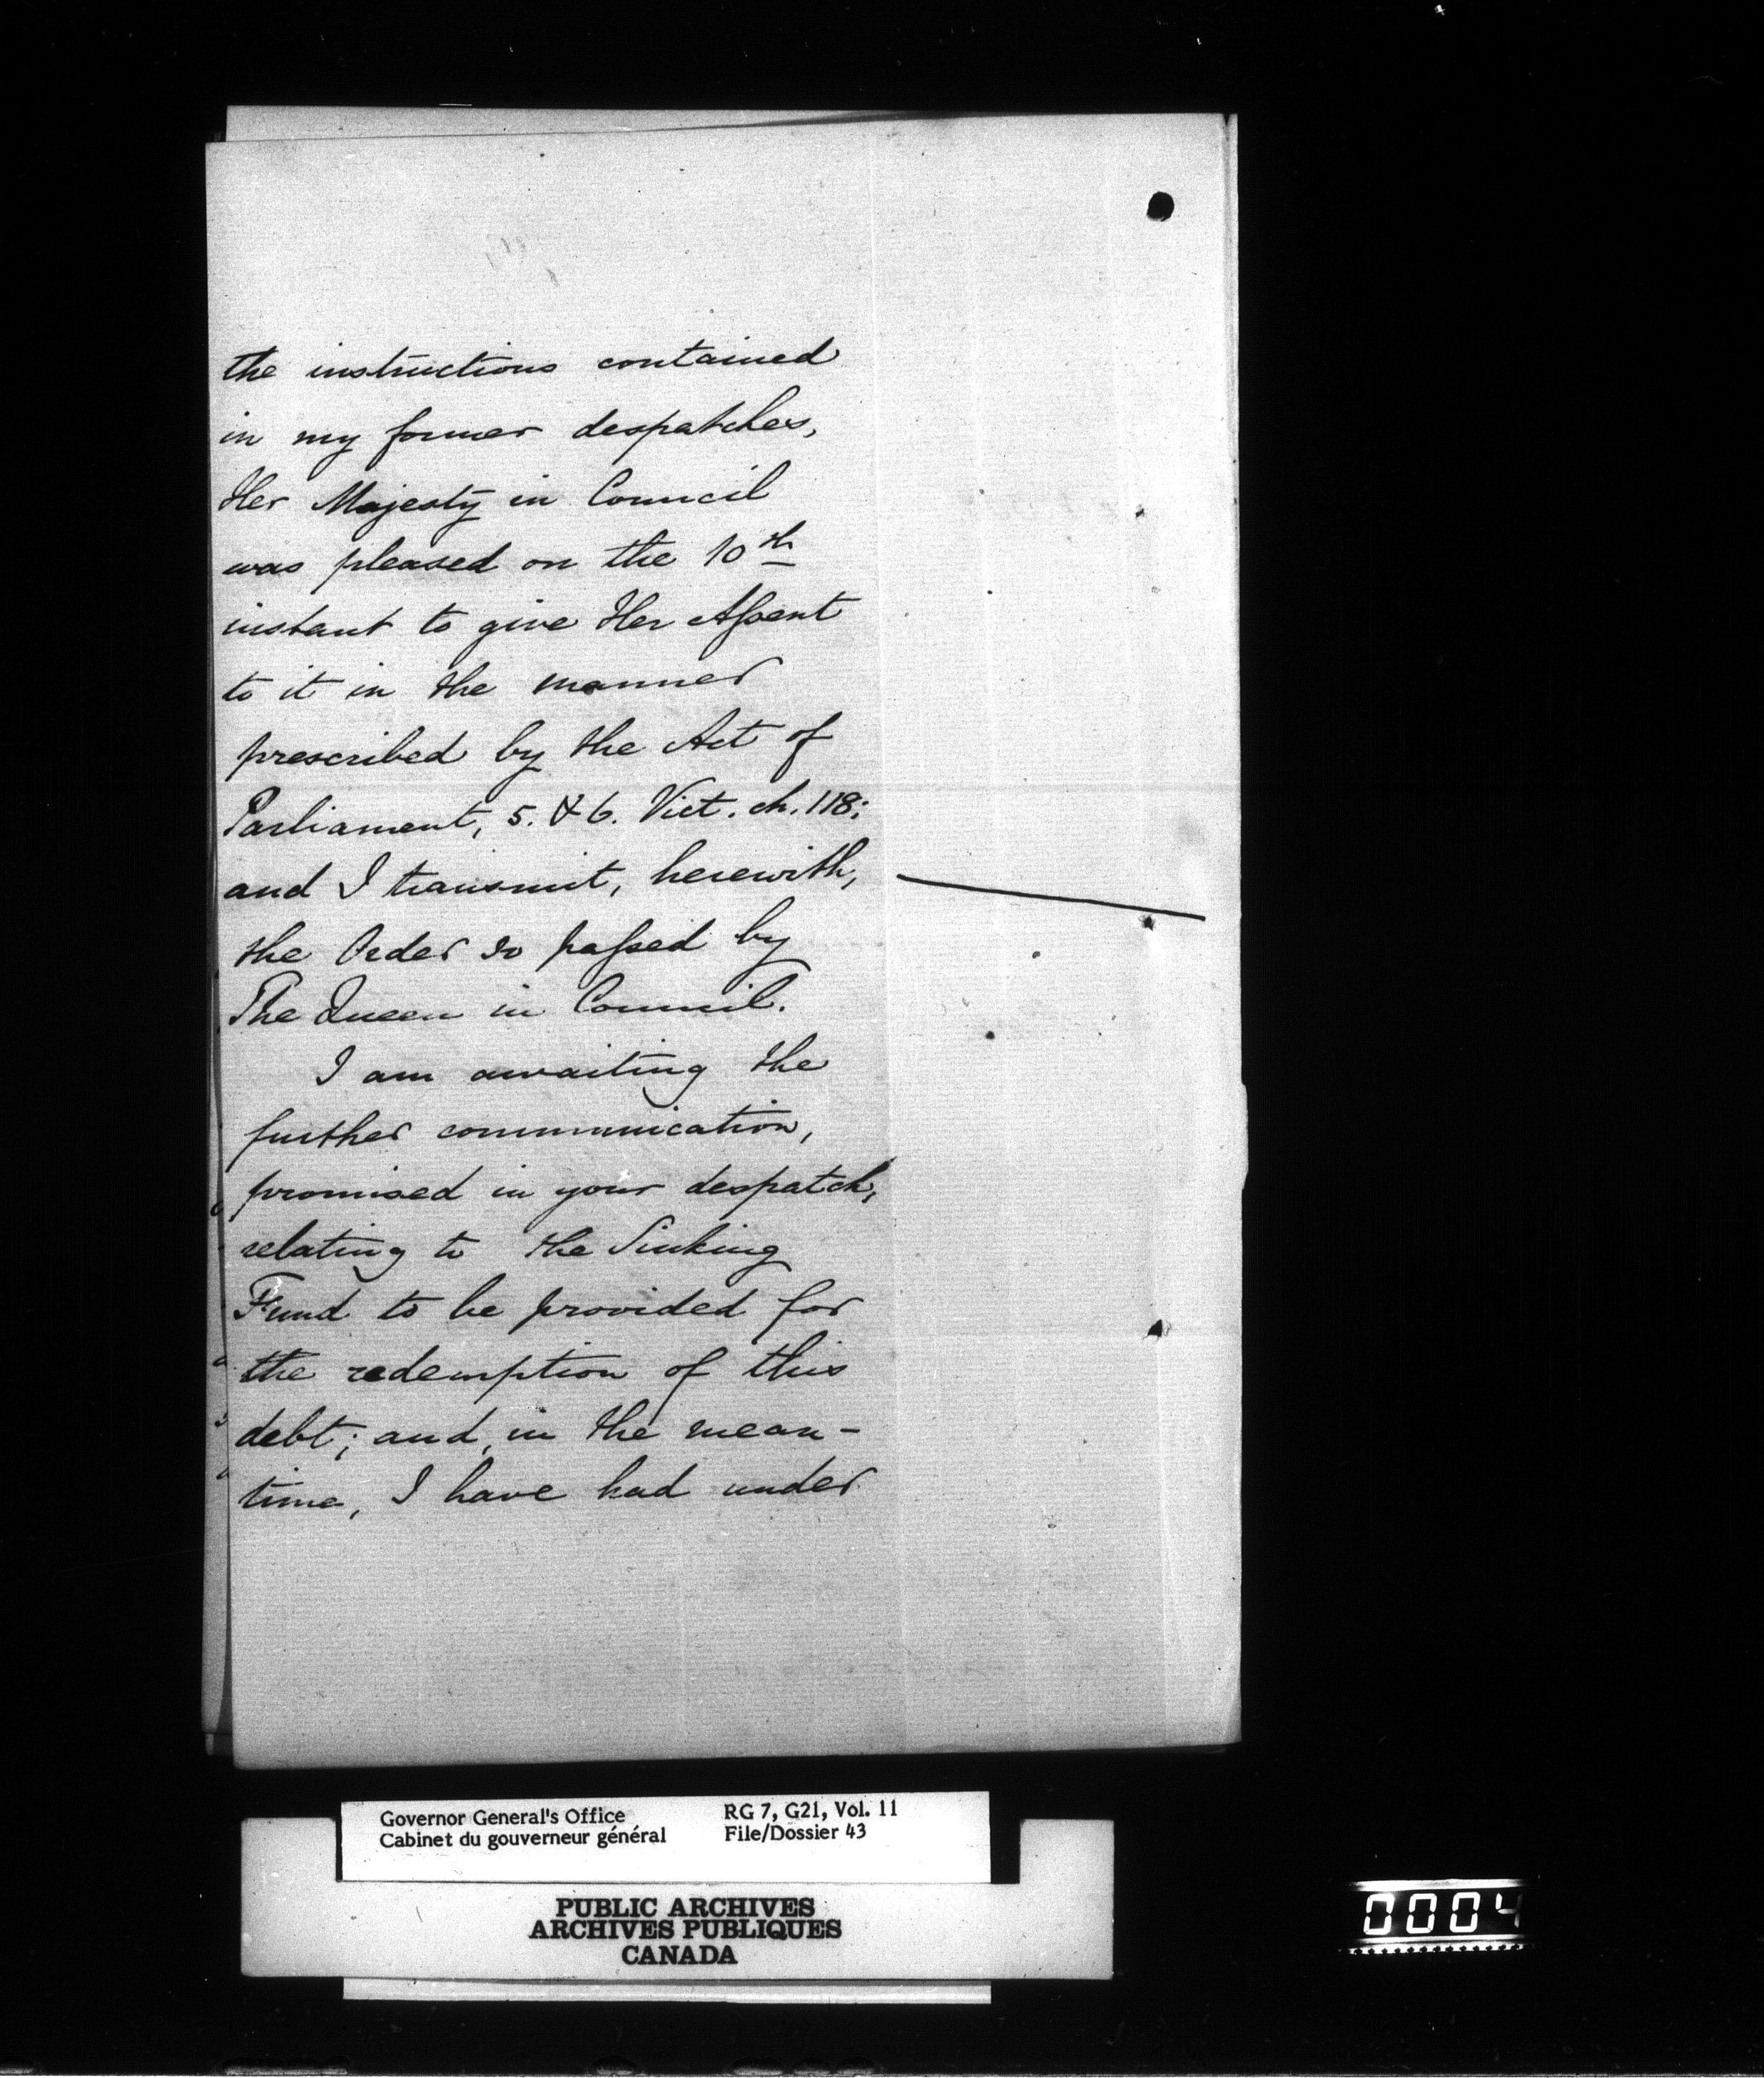 the instructions contained
in my former despatches,
Her Majesty in Council
was pleased on the 10th
instant to give Her Assent
to it in the manner
prescribed by the Act of
Parliament, 5. & 6. Vict. ch. 118;
and I transmit, herewith,
the Order so passed by
The Queen in Council.
I am awaiting the
further communication,
promised in your despatch,
relating to the Sinking
Fund to be provided for
the redemption of this
debt; and, in the mean-
time, I have had under
Governor General's Office RG 7, G21, Vol. 11
Cabinet du gouverneur général File/Dossier 43
PUBLIC ARCHIVES
ARCHIVES PUBLIQUES
CANADA
0004